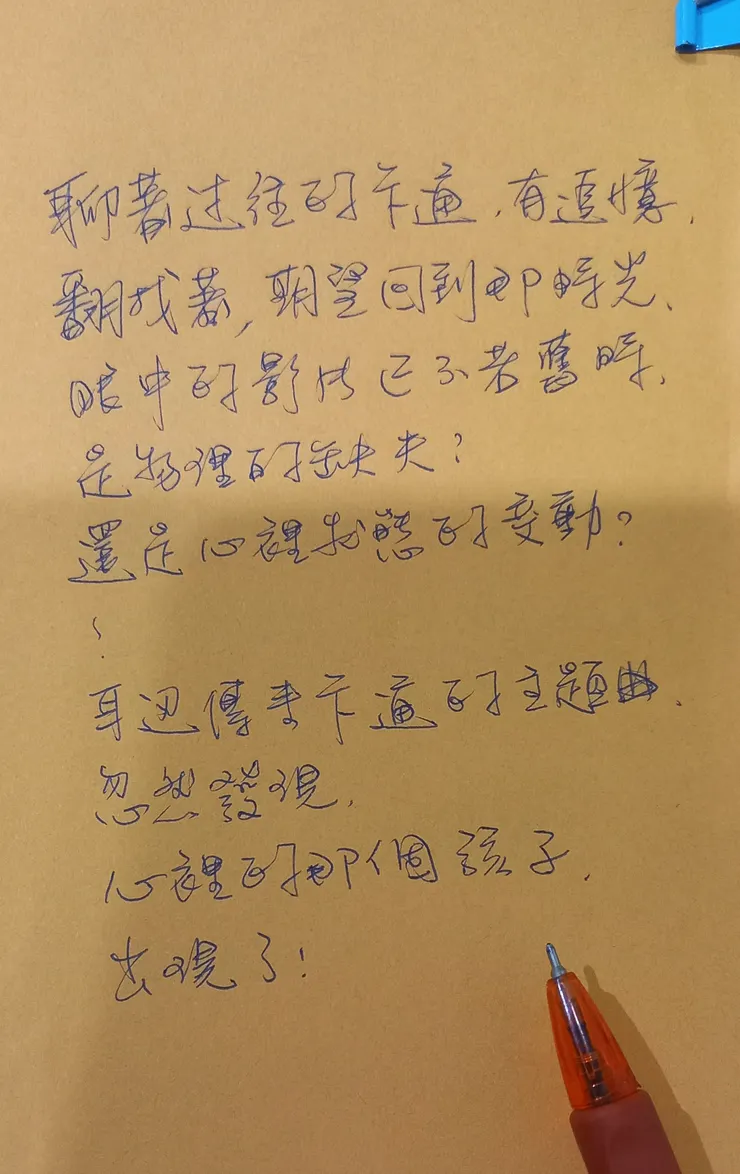 聊著过往的卡通,有追憶,
翻找著,期望回到那時光、
眼中的影片已不若舊時,
是物理的缺失?
還是心裡狀態的变動?
⋮
耳边傳來卡通的主題曲,
忽然發現,
心裡的那個孩子,
出現了!